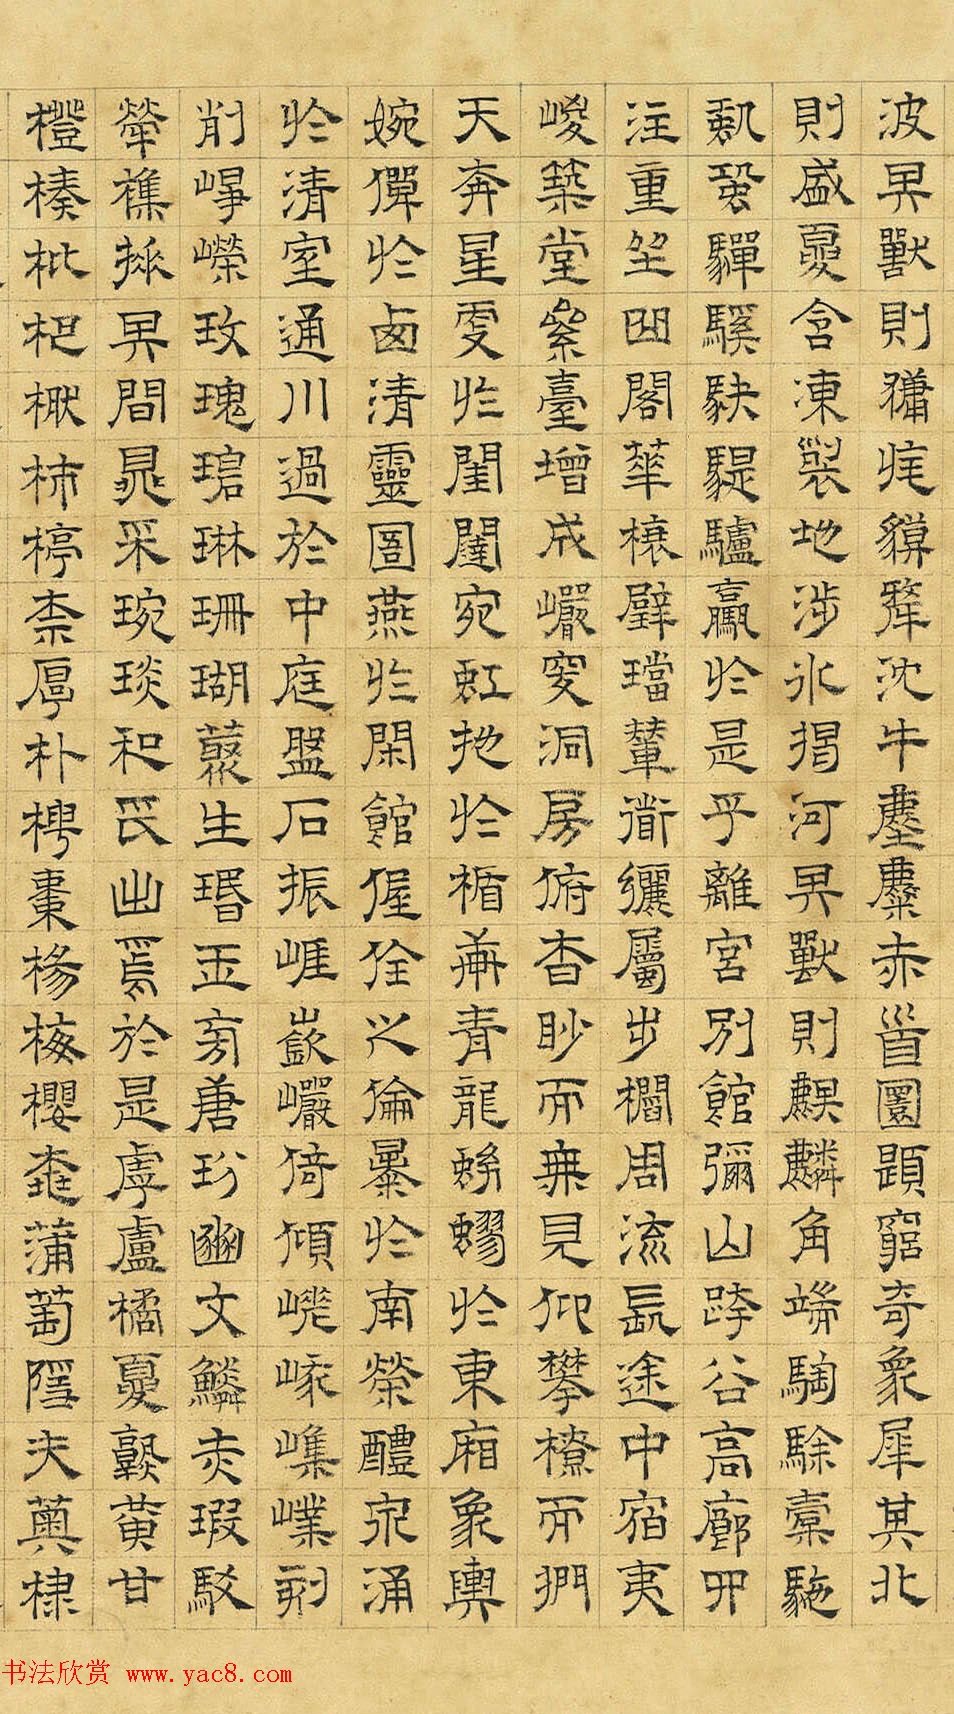 波其獸則㺎旄貘犛沈牛麈麋赤首圜題窮奇象犀其北
則盛夏含凍裂地涉冰揭河其獸則麒麟角端騊駼橐駞
蛩蛩驒騱駃騠驢驘於是乎離宮別館彌山跨谷高廊四
注重坐曲閣華榱璧璫輦道纚屬步櫩周流長途中宿夷
嵕築堂絫臺增成巖窔洞房俯杳眇而無見仰攀橑而捫
天奔星更於閨闥宛虹拖於楯軒青龍蚴蟉於東廂象輿
婉僤於西清靈圄燕於閒館偓佺之倫暴於南榮醴泉涌
於清室通川過於中庭盤石振崖嶔巖倚傾嵯峨嶕嶫刻
削崢嶸玫瑰碧琳珊瑚叢生瑉玉旁唐玢豳文鱗赤瑕駁
犖雜臿其間晁采琬琰和氏出焉於是虖盧橘夏孰黃甘
橙楱枇杷橪柿楟柰厚朴梬棗楊梅櫻桃蒲萄隱夫薁棣
书法欣赏 www.yac8.com